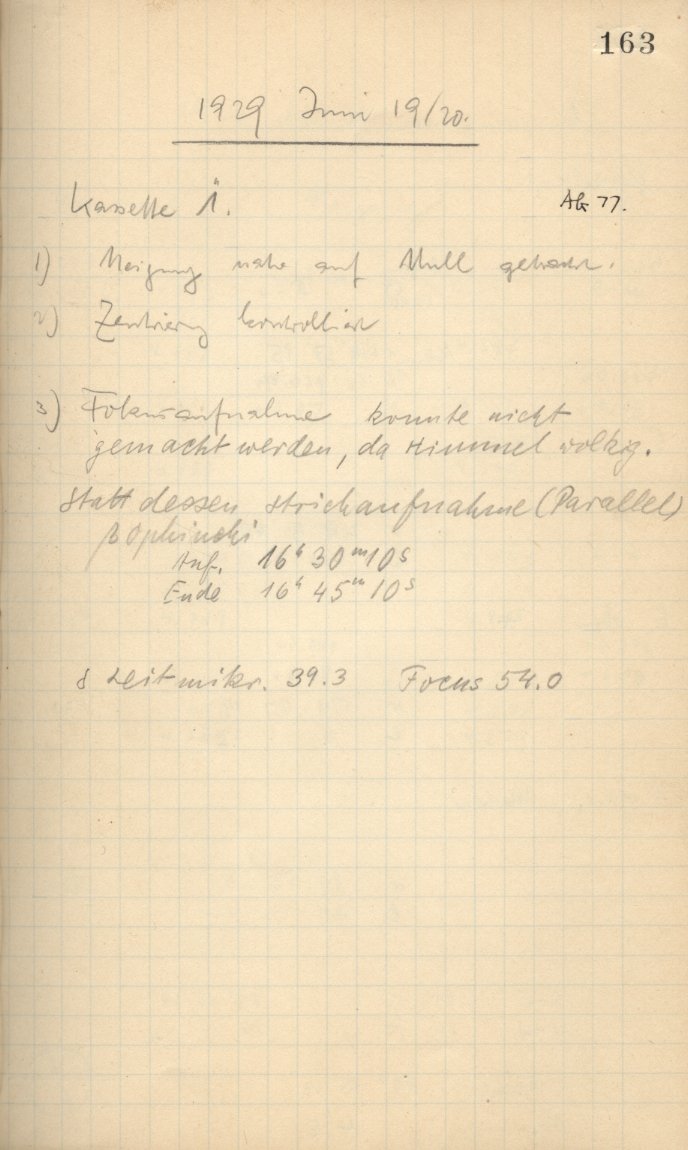 163
1929 Juni 19/20.
Kassette 1.
AG 77.
1) Neigung nahe auf Null gebracht.
2) Zentrierung kontrolliert
3) Fokusaufnahme konnte nicht
gemacht werden, da Himmel wolkig.
Statt dessen Strichaufnahme (Parallel)
β Ophiuchi
Anf. 16h 30m 10s
Ende 16h 45m 10s
δ Leitmikr. 39.3 Focus 54.0